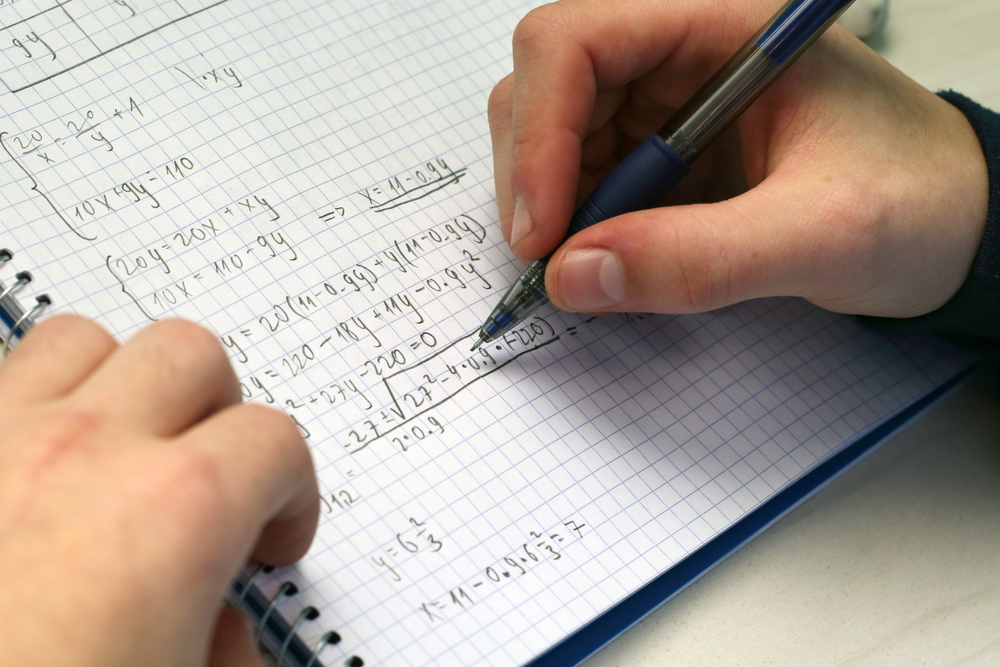 9y
\·xy
20/x = 20/y + 1
10x+9y=110
20y=20x+xy
10x = 110-9y => x=11-0.9y
y=20(11-0.9y)+y(11-0.9y)
0y=220-18y+11y-0.9y²
+27y-220=0
-27±√27²-4·0.9·(-220) =
2·0.9
=
y=6 2/3
x=11-0.9·6 2/3=7